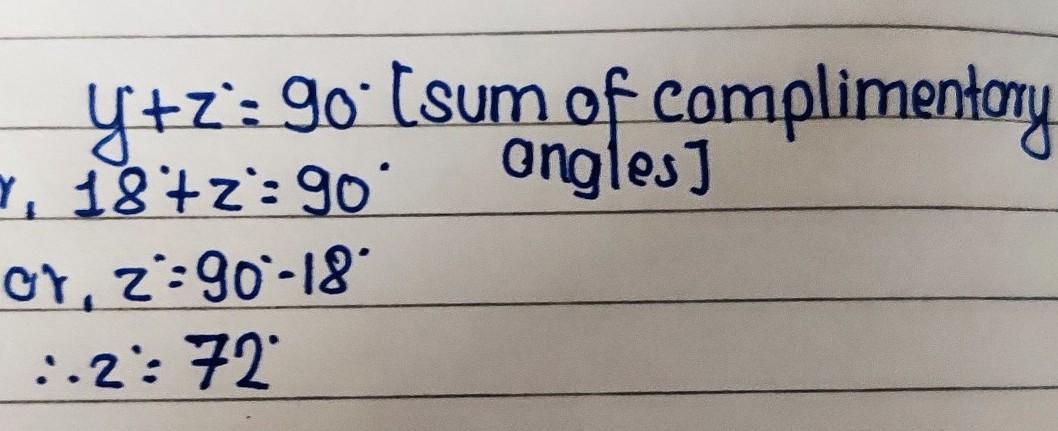 y+z°= 90° [sum of complimentary
angles]
r, 18°+z°= 90°
or, z°=90°-18°
∴z°= 72°